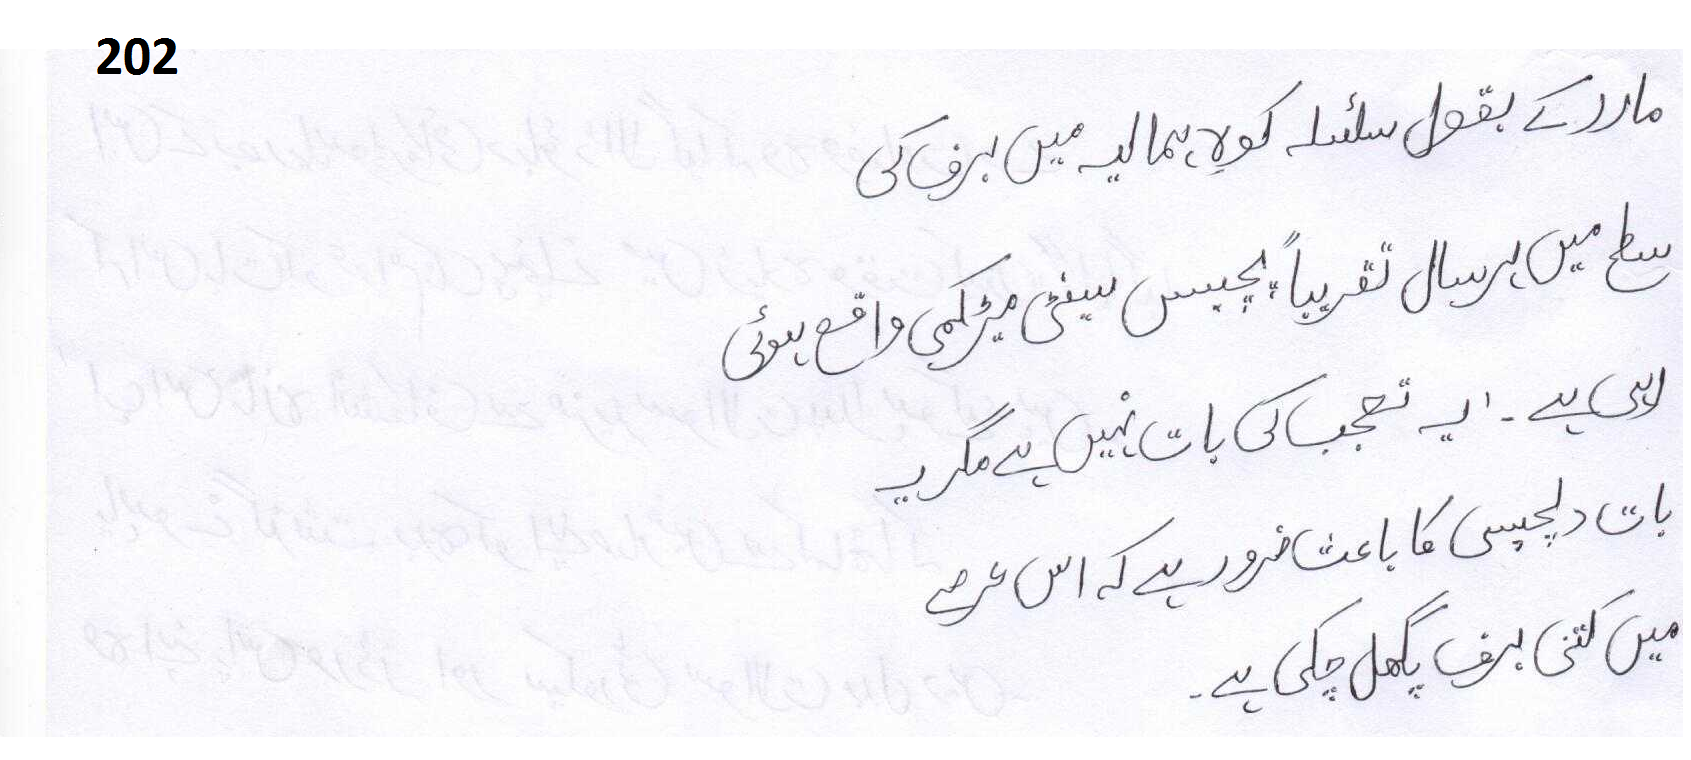 202
مارر کے بقول سلسلہ کوہِ ہمالیہ میں برف کی
سطح میں ہر سال تقریباً پچیس سینٹی میٹر کمی واقع ہوئی
رہی ہے۔ یہ تعجب کی بات نہیں ہے مگر یہ
بات دلچسپی کا باعث ضرور ہے کہ اس عرصے
میں کتنی برف پگھل چکی ہے۔